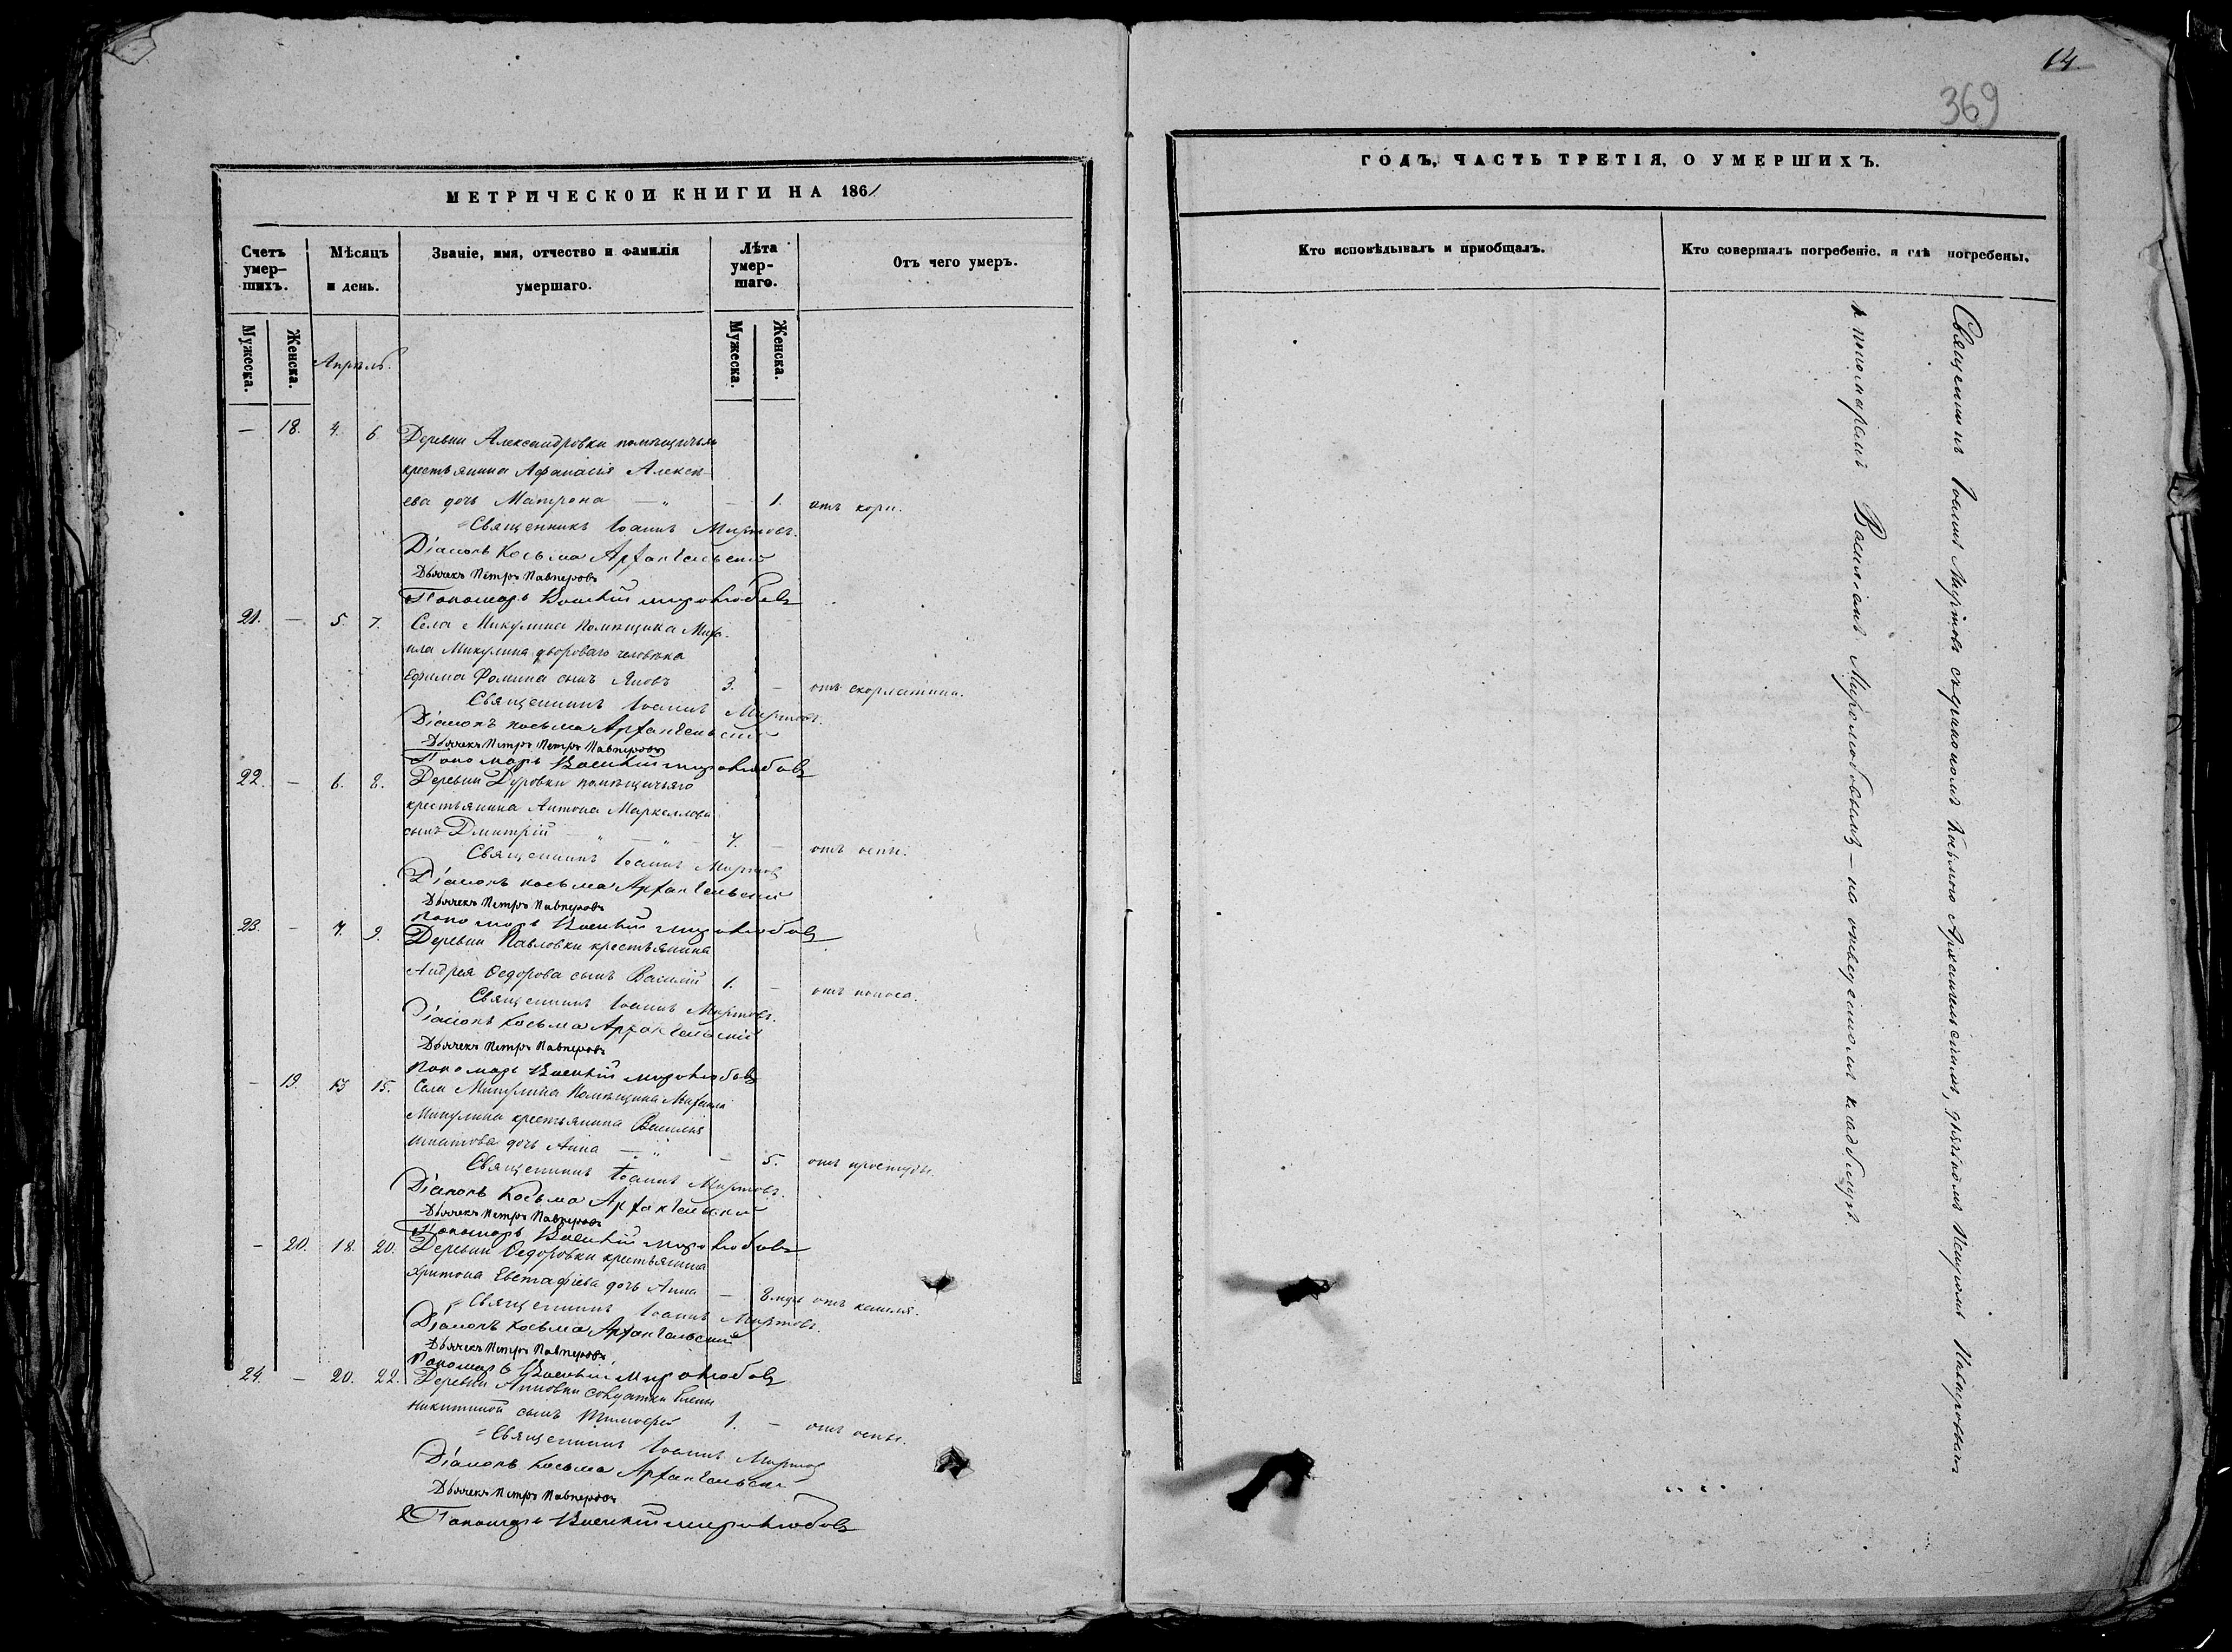 МЕТРИЧЕСКОЙ КНИГИ НА 1861
Счетъ умер-шихъ.
Мѣсяцъ и день.
Званіе, имя, отчество и фамилія умершаго.
Лѣта умер-шаго.
Отъ чего умеръ.
Мужеска.
Женска.
Апрѣль.
Мужеска.
Женска.
— 18. 4. 6 Деревни Александровки помѣщичьяго
крестьянина Афанасія Алексѣ-
ева дочь Матрона — „ — 1. отъ кори.
Священникъ Іоаннъ Миртовъ.
Діаконъ Косьма Архангельскій
Дьячекъ Петръ Павперовъ
Пономарь Василій Миролюбовъ
21. — 5. 7. Села Микулина помѣщика Миха-
ила Микулина двороваго человѣка
Ефима Фомина сынъ Яковъ 3. — отъ скорлатины.
Священникъ Іоаннъ Миртовъ.
Діаконъ Косьма Архангельскій
Дьячекъ Петръ Петръ Павперовъ
Пономарь Василій Миролюбовъ
22. — 6. 8. Деревни Дуровки помѣщичьяго
крестьянина Антона Маркеллова
сынъ Дмитрій — „ — „ — 7. — отъ оспы.
Священникъ Іоаннъ Миртовъ
Діаконъ Косьма Архангельскій
Дьячекъ Петръ Павперовъ
Пономарь Василій Миролюбовъ
23. — 7. 9. Деревни Павловки крестьянина
Андрея Ѳедорова сынъ Василій 1. — отъ поноса.
Священникъ Іоаннъ Миртовъ.
Діаконъ Косьма Архангельскій
Дьячекъ Петръ Павперовъ
Пономарь Василій Миролюбовъ
— 19. 13 15. Села Микулина помѣщика Михаила
Микулина крестьянина Василья
Игнатова дочь Анна — „ — 5. отъ простуды.
Священникъ Іоаннъ Миртовъ.
Діаконъ Косьма Архангельскій
Дьячекъ Петръ Павперовъ
Пономарь Василій Миролюбовъ
— 20. 18. 20. Деревни Ѳедоровки крестьянина
Харитона Евстафіева дочь Анна — 8 мѣс. отъ кашля.
Священникъ Іоаннъ Миртовъ.
Діаконъ Косьма Архангельскій
Дьячекъ Петръ Павперовъ
Пономарь Василій Миролюбовъ
24. — 20. 22. Деревни Анновки солдатки Елены
Никитиной сынъ Тимофей 1. — отъ оспы.
Священникъ Іоаннъ Миртовъ
Діаконъ Косьма Архангельскій
Дьячекъ Петръ Павперовъ
Пономарь Василій Миролюбовъ
14
369
ГОДЪ, ЧАСТЬ ТРЕТІЯ, О УМЕРШИХЪ.
Кто исповѣдывалъ и пріобщалъ.
Кто совершалъ погребеніе, и гдѣ погребены.
Священникъ Іоаннъ Миртовъ съ діакономъ Косьмою Архангельскимъ, дьячкомъ Петромъ Павперовымъ
и пономаремъ Василіемъ Миролюбовымъ — на отведенномъ кладбищѣ.